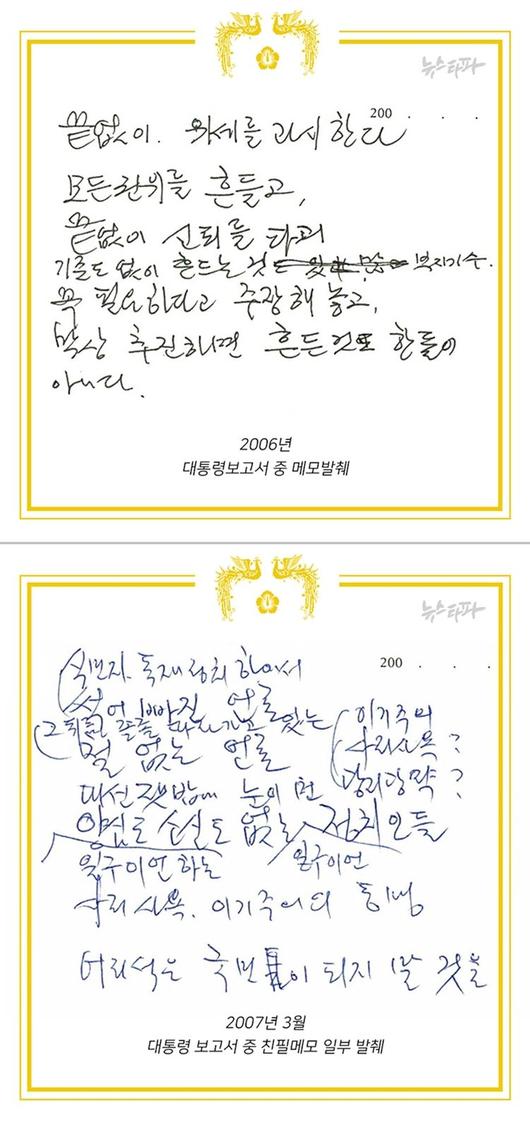 뉴스타파
200 . . .
끝없이. 위세를 과시한다
모든 권위를 흔들고,
끝없이 신뢰를 타파
기준도 없이 흔드는 것 복지기수.
꼭 필요하다고 주장해 놓고,
막상 추진하면 흔든 것도 한둘이
아니다.
2006년
대통령보고서 중 메모발췌
뉴스타파
200 . . .
식민지. 독재정치 하에서
썩어 빠진 언론
그 뒤를 졸졸 따라가고 있는
철 없는 언론
이기주의
사리사욕?
당리당략?
대선 잿밥에 눈이 먼
양심도 소신도 없는 정치인들
일구이언 하는
일구이언
사리사욕. 이기주의의 동맹
어리석은 국민이 되지 말 것을
2007년 3월
대통령 보고서 중 친필메모 일부 발췌